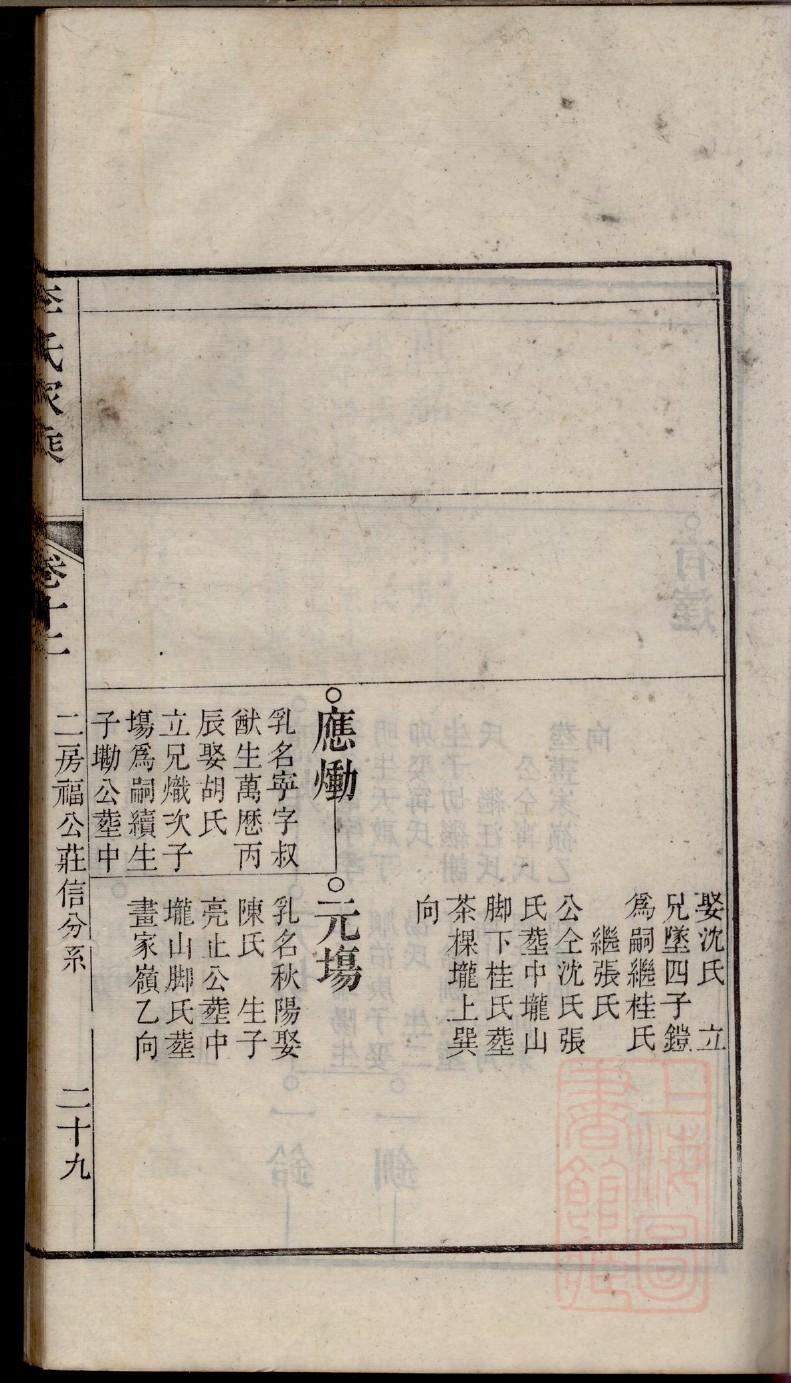 娶沈氏　立
兄墜四子鎧
爲嗣繼桂氏
繼張氏
公仝沈氏張
氏塟中壠山
脚下桂氏塟
茶棵壠上巽
向
應慟
乳名寕字叔
猷生萬歷丙
辰娶胡氏
立兄熾次子
塲爲嗣續生
子墈公塟中
元塲
乳名秋陽娶
陳氏　生子
亮止公塟中
壠山脚氏塟
畫家嶺乙向
李氏家乘
卷十二
二房福公莊信分系
二十九
上海圖書館藏